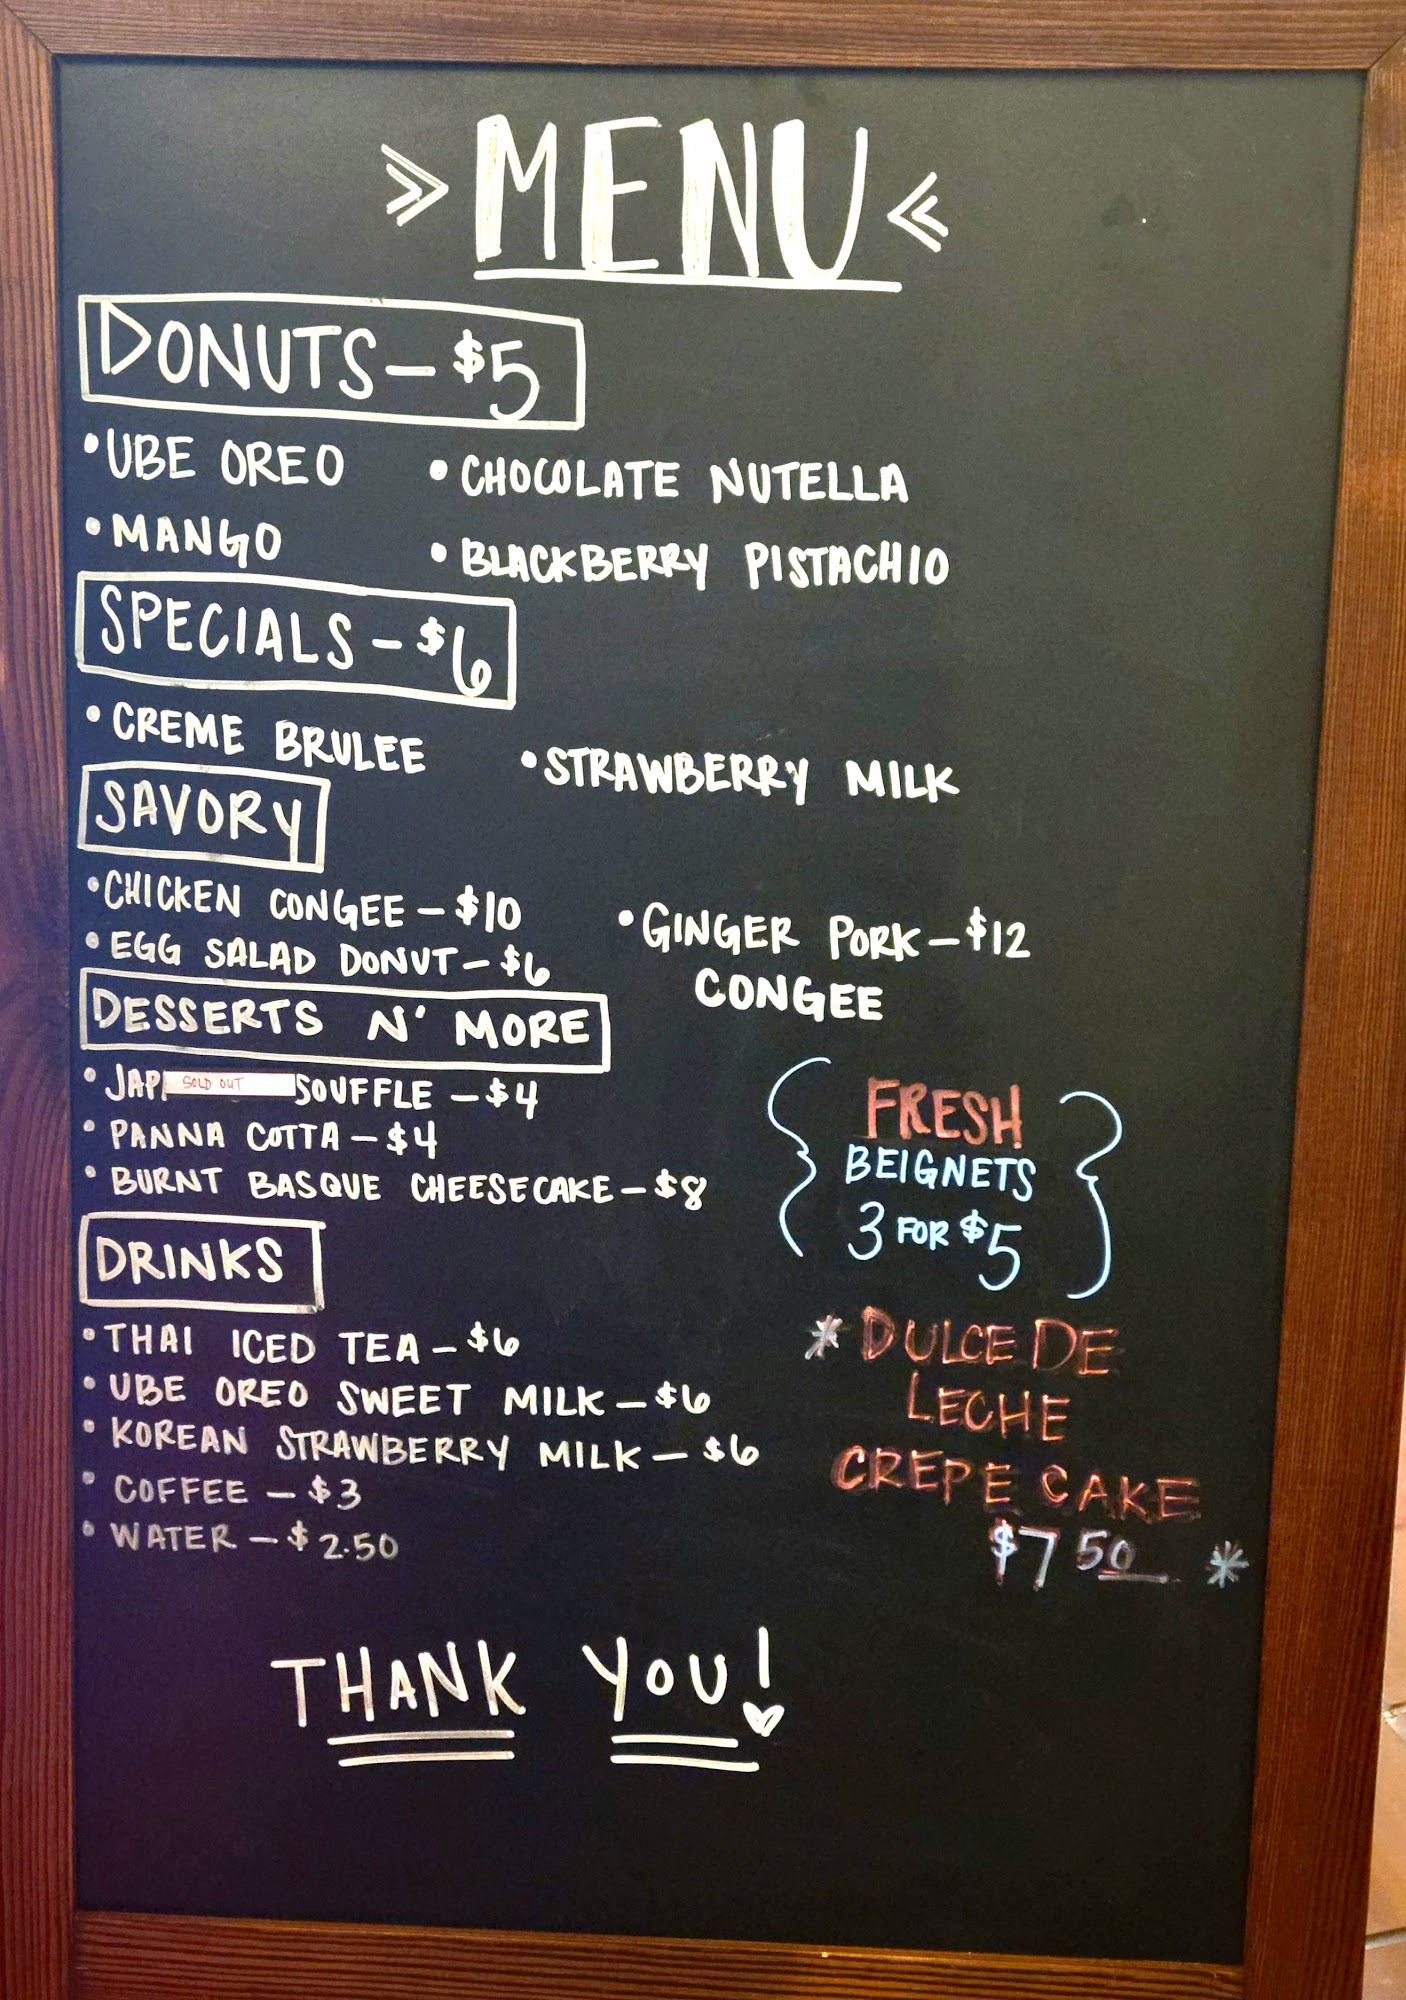 >> MENU <<
DONUTS - $5
• UBE OREO • CHOCOLATE NUTELLA
• MANGO • BLACKBERRY PISTACHIO
SPECIALS - $6
• CREME BRULEE • STRAWBERRY MILK
SAVORY
• CHICKEN CONGEE - $10
• EGG SALAD DONUT - $6
• GINGER PORK - $12
CONGEE
DESSERTS N' MORE
• SOLD OUT SOUFFLE - $4
• PANNA COTTA - $4
• BURNT BASQUE CHEESECAKE - $8
FRESH
BEIGNETS
3 FOR $5
DRINKS
• THAI ICED TEA - $6
• UBE OREO SWEET MILK - $6
• KOREAN STRAWBERRY MILK - $6
• COFFEE - $3
• WATER - $2.50
* DULCE DE
LECHE
CREPE CAKE
$7 50 *
THANK YOU!